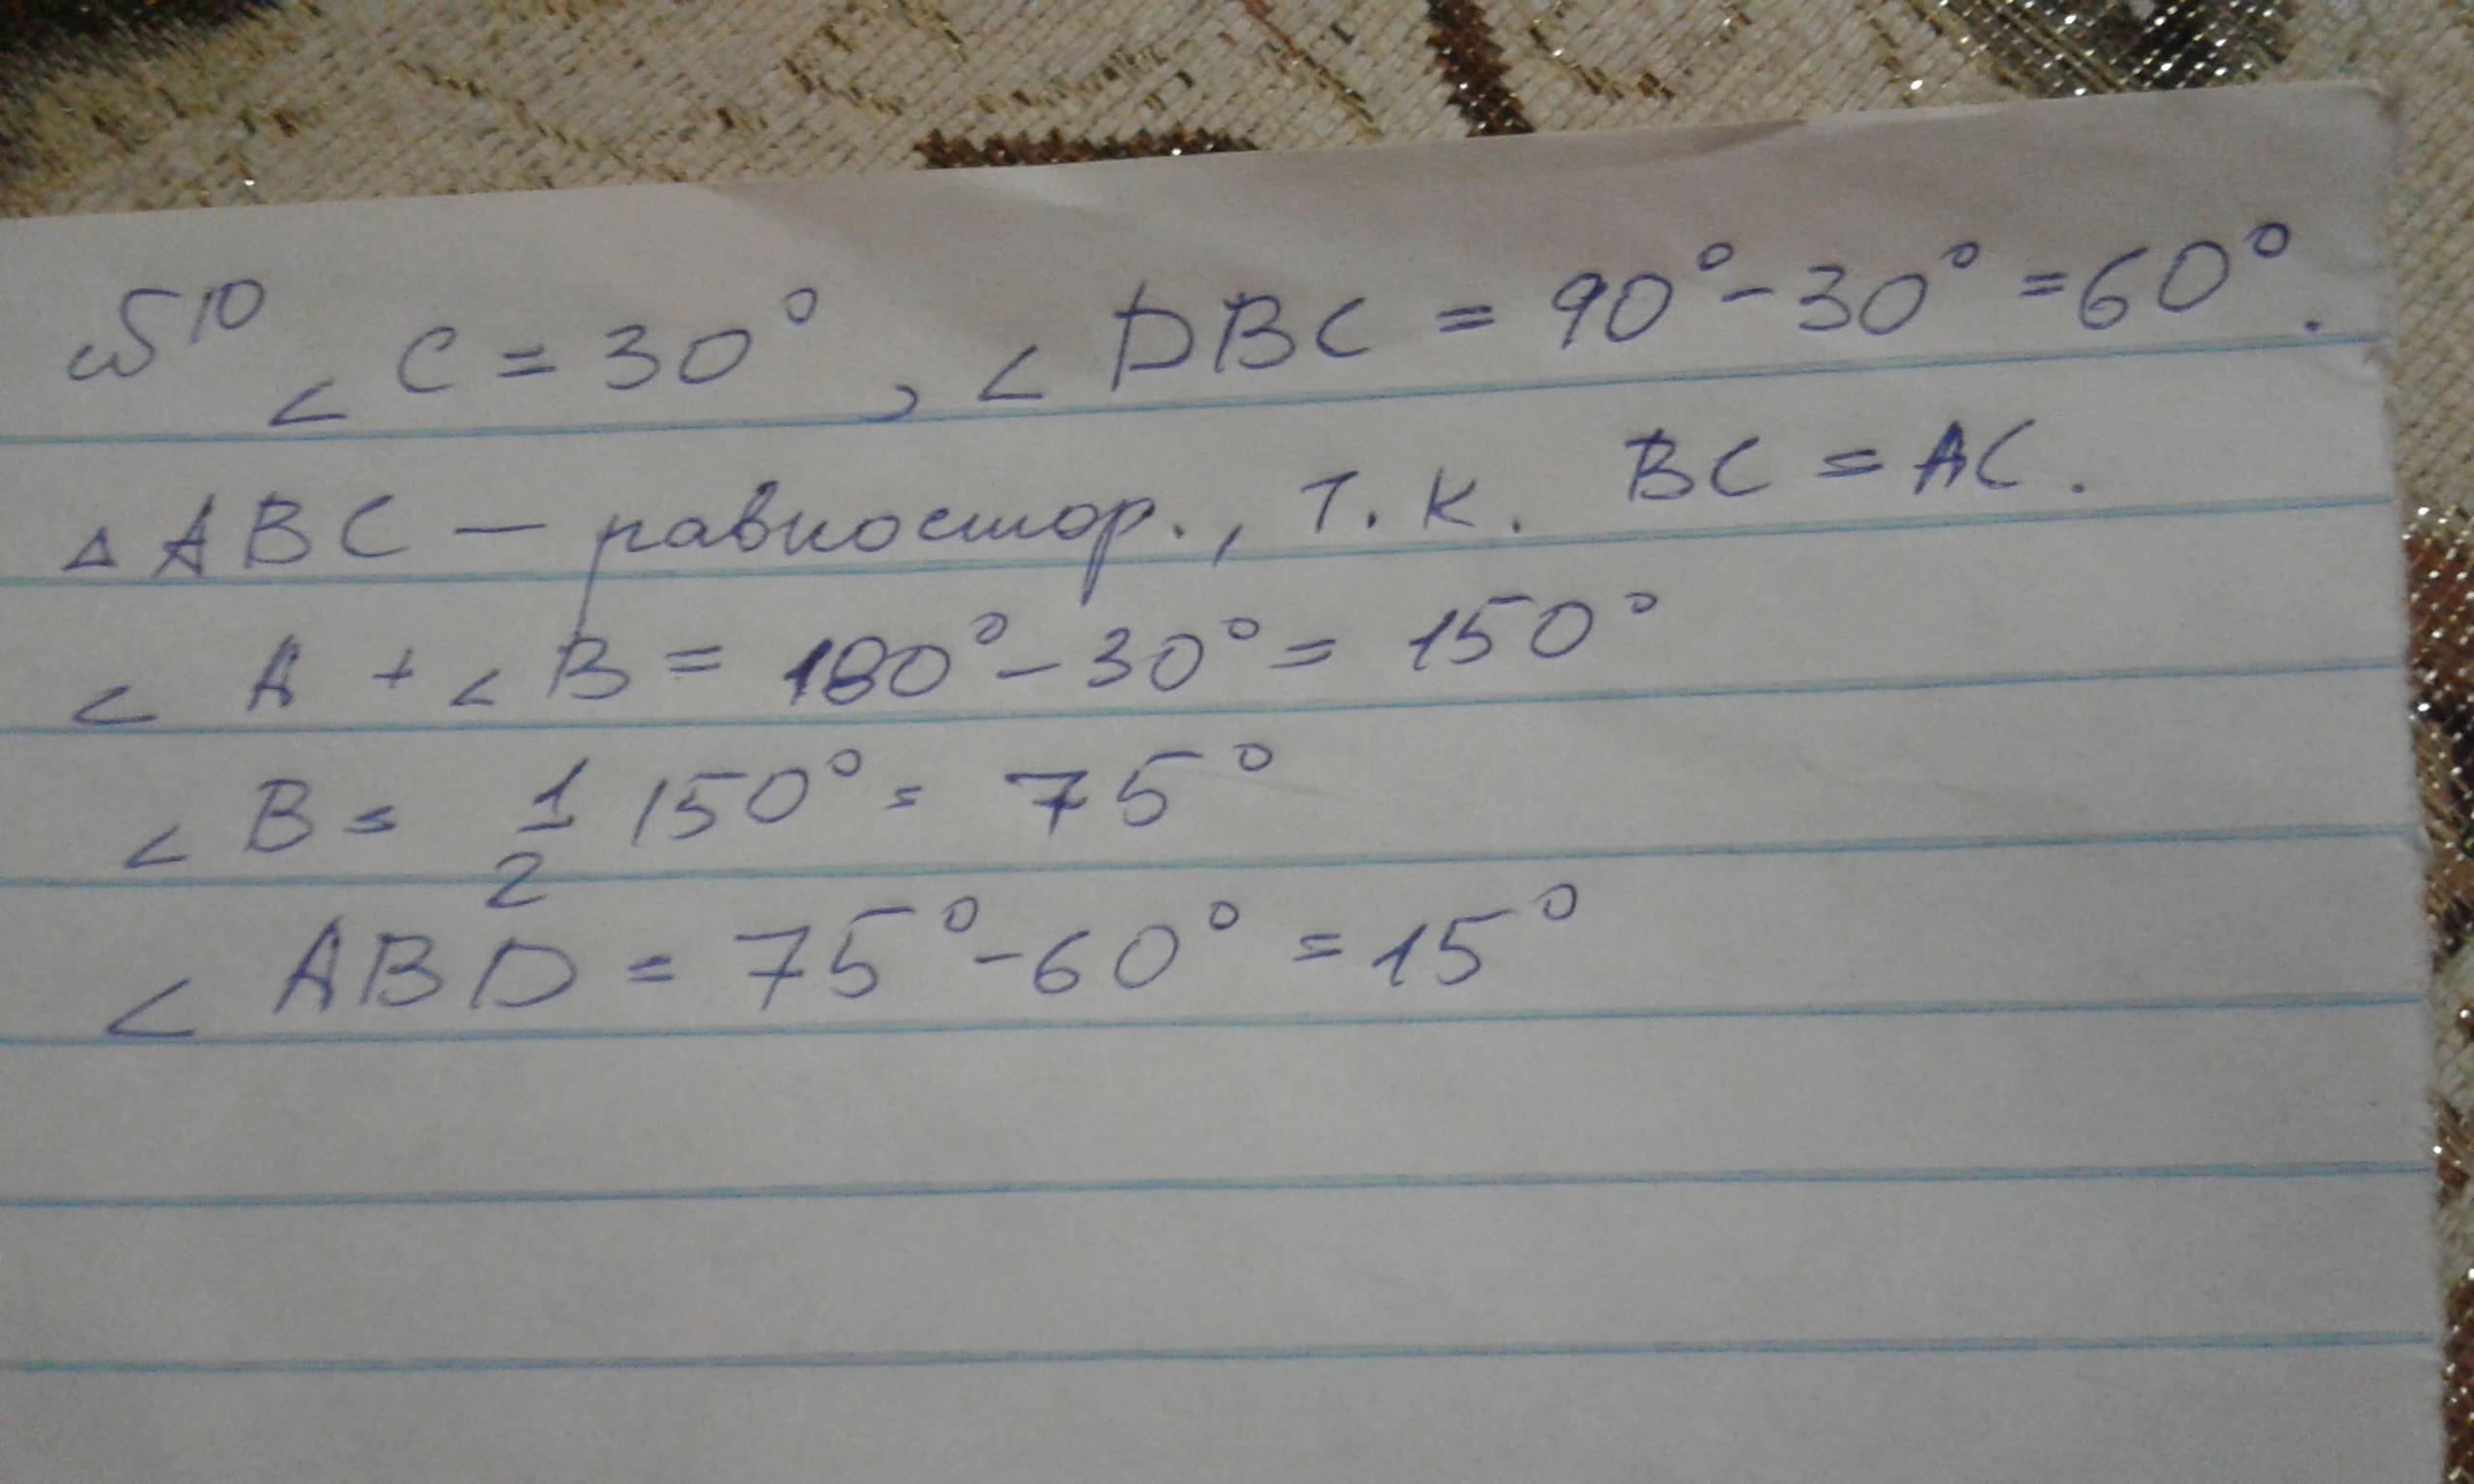 ∠ C = 30°, ∠ DBC = 90° - 30° = 60°.
△ ABC — равностор., т. к. BC = AC.
∠ A + ∠ B = 180° - 30° = 150°
∠ B = 1/2 150° = 75°
∠ ABD = 75° - 60° = 15°